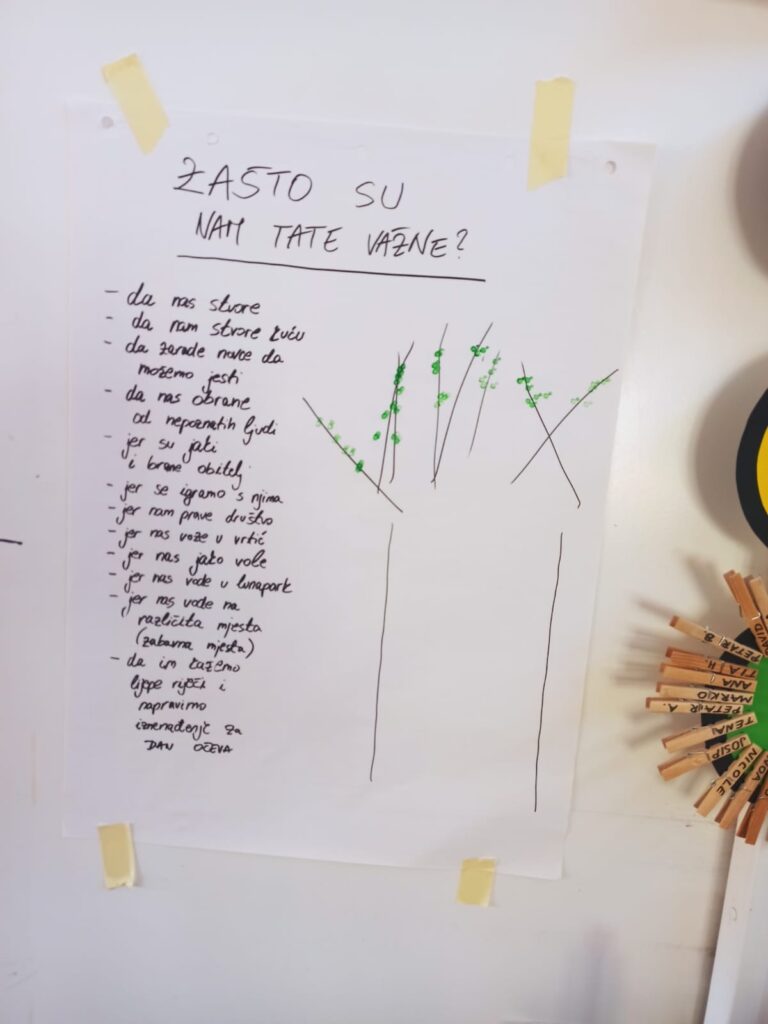 ZAŠTO SU
NAM TATE VAŽNE?
- da nas stvore
- da nam stvore kuću
- da zarade novce da
možemo jesti
- da nas obrane
od nepoznatih ljudi
- jer su jaki
i brane obitelj
- jer se igramo s njima
- jer nam prave društvo
- jer nas voze u vrtić
- jer nas jako vole
- jer nas vode u lunapark
- jer nas vode na
različita mjesta
(zabavna mjesta)
- da im kažemo
lijepe riječi i
napravimo
iznenađenje za
DAN OČEVA
DAVID
PETAR B.
TIA H.
ANA
MARKO
PETAR A.
TENA
JOSIP
NICOLE
NOA